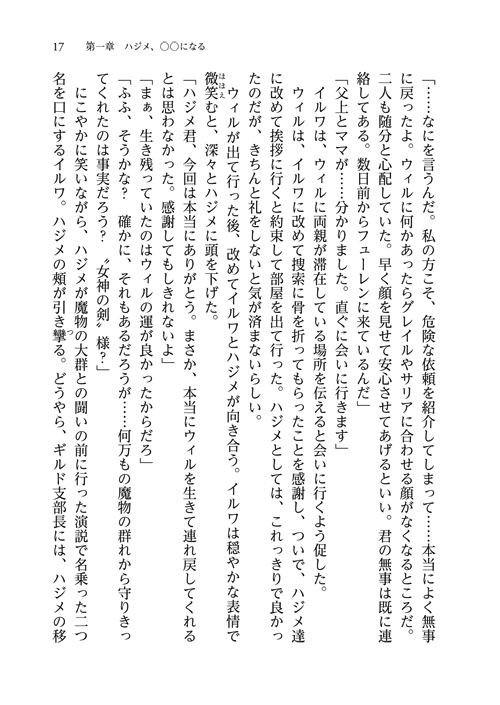 17　第一章　ハジメ、〇〇になる
「……なにを言うんだ。私の方こそ、危険な依頼を紹介してしまって……本当によく無事
に戻ったよ。ウィルに何かあったらグレイルやサリアに合わせる顔がなくなるところだ。
二人も随分と心配していた。早く顔を見せて安心させてあげるといい。君の無事は既に連
絡してある。数日前からフューレンに来ているんだ」
「父上とママが……分かりました。直ぐに会いに行きます」
イルワは、ウィルに両親が滞在している場所を伝えると会いに行くよう促した。
ウィルは、イルワに改めて捜索に骨を折ってもらったことを感謝し、ついで、ハジメ達
に改めて挨拶に行くと約束して部屋を出て行った。ハジメとしては、これっきりで良かっ
たのだが、きちんと礼をしないと気が済まないらしい。
ウィルが出て行った後、改めてイルワとハジメが向き合う。イルワは穏やかな表情で
微笑むと、深々とハジメに頭を下げた。
ほほえ
「ハジメ君、今回は本当にありがとう。まさか、本当にウィルを生きて連れ戻してくれる
とは思わなかった。感謝してもしきれないよ」
「まぁ、生き残っていたのはウィルの運が良かったからだろ」
「ふふ、そうかな？　確かに、それもあるだろうが……何万もの魔物の群れから守りきっ
てくれたのは事実だろう？　〝女神の剣〟様？」
にこやかに笑いながら、ハジメが魔物の大群との闘いの前に行った演説で名乗った二つ
名を口にするイルワ。ハジメの頰が引き攣る。どうやら、ギルド支部長には、ハジメの移
つ